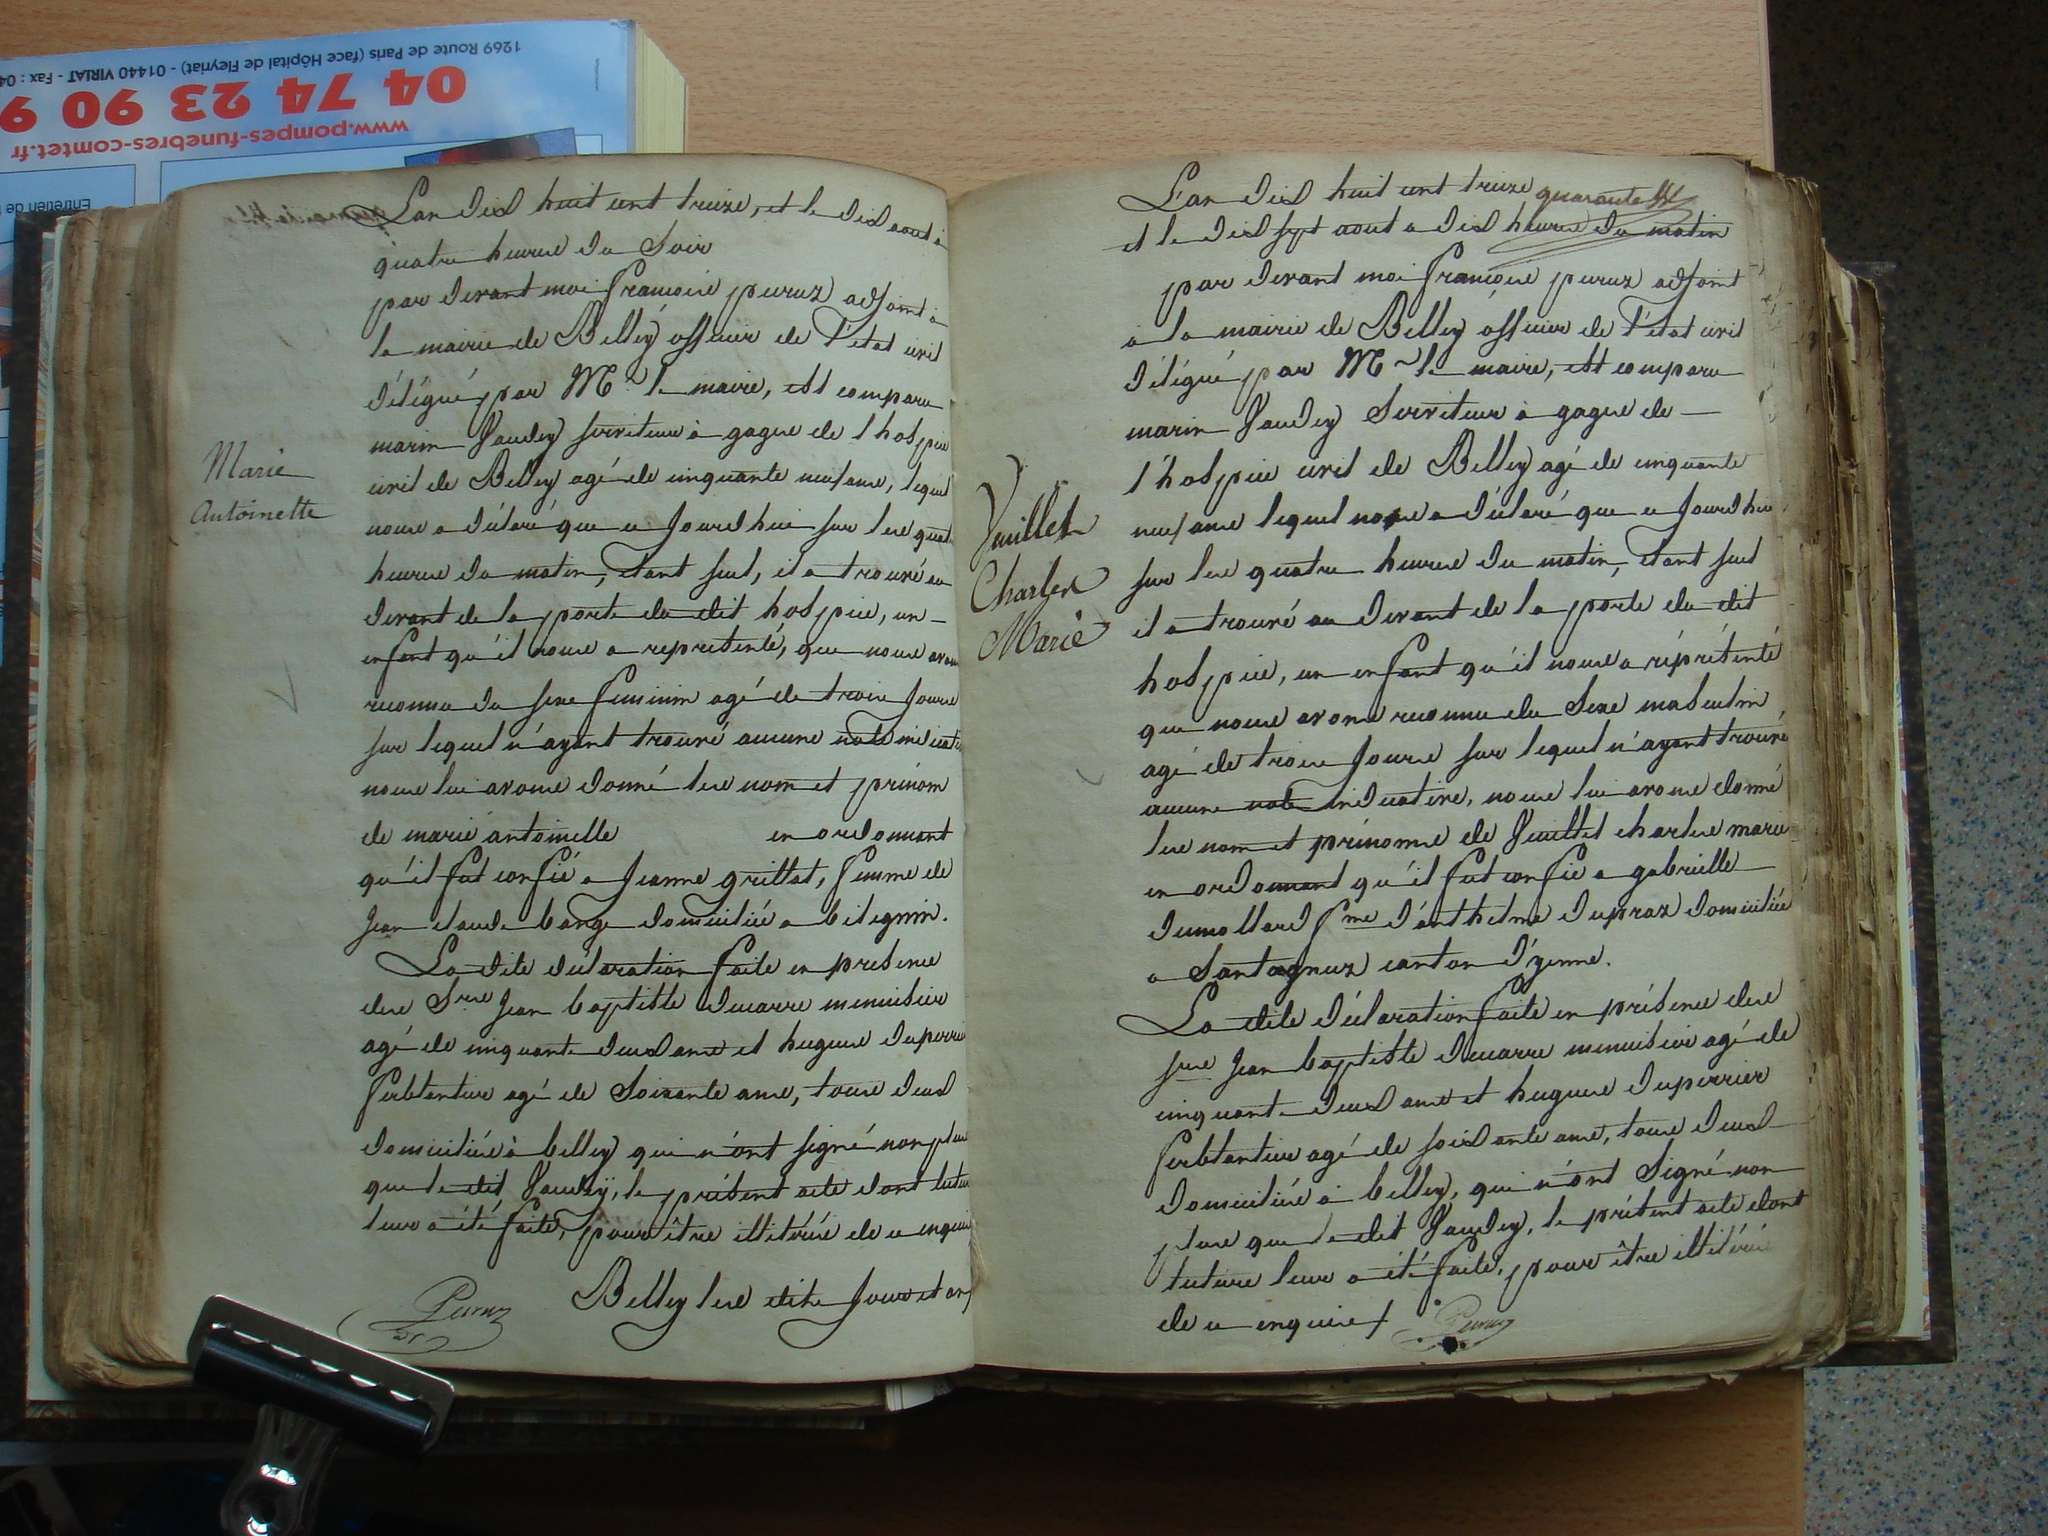 1269 Route de Paris (face Hôpital de Fleyriat) - 01440 VIRIAT - Fax : 04
04 74 23 90 9
www.pompes-funebres-comtet.fr
Entretien de
L'an dix huit cent treize, et le dix aout à
quatre heures du Soir
par devant moi françois peruz adjoint à
la mairie de Belley officier de l'état civil
délégué par Mr le maire, est comparu
marin Vaudey serviteur à gages de l'hospice
civil de Belley agé de cinquante neuf ans, lequel
nous a déclaré que ce Jourd'hui sur les quatre
heures du matin, étant seul, il a trouvé au
devant de la porte du dit hospice, un
enfant qu'il nous a représenté, que nous avons
reconnu du sexe feminin agé de trois Jours
sur lequel n'ayant trouvé aucune note indicative
nous lui avons donné les nom et prénom
de marie antoinette en ordonnant
qu'il fut confié a Jeanne grillat, femme de
Jean claude barge domiciliée a bilignin.
La dite déclaration faite en présence
des Srs Jean baptiste ducarre menuisier
agé de cinquante deux ans et hugues duperrier
ferblantier agé de Soixante ans, tous deux
domiciliés à belley qui n'ont signé non plus
que le dit Vaudey, le présent acte dont lecture
leur a été faite, pour être illitérés de ce enquis
Belley les dits Jour et an
Peruz
Marie
Antoinette
L'an dix huit cent treize quarante
et le dix sept aout a dix heures du matin
par devant moi françois peruz adjoint
a la mairie de Belley officier de l'état civil
délégué par Mr le maire, est comparu
marin Vaudey Serviteur à gages de
l'hospice civil de Belley agé de cinquante
neuf ans lequel nous a déclaré que ce Jourd'hui
sur les quatre heures du matin, étant seul
il a trouvé au devant de la porte du dit
hospice, un enfant qu'il nous a réprésenté
que nous avons reconnu du Sexe masculin
agé de trois Jours sur lequel n'ayant trouvé
aucune note indicative, nous lui avons donné
les nom et prénoms de Vuillet charles marie
en ordonnant qu'il fut confié a gabrielle
dumollard fme d'anthelme dupraz domiciliée
a Santagneux canton d'yenne.
La dite déclaration faite en présence des
srs Jean baptiste ducarre menuisier agé de
cinquante deux ans et hugues duperrier
ferblantier agé de soixante ans, tous deux
domiciliés à belley, qui n'ont Signé non
plus que le dit Vaudey, le présent acte dont
lecture leur a été faite, pour être illitérés
de ce enquis
Peruz
Vuillet
Charles
Marie